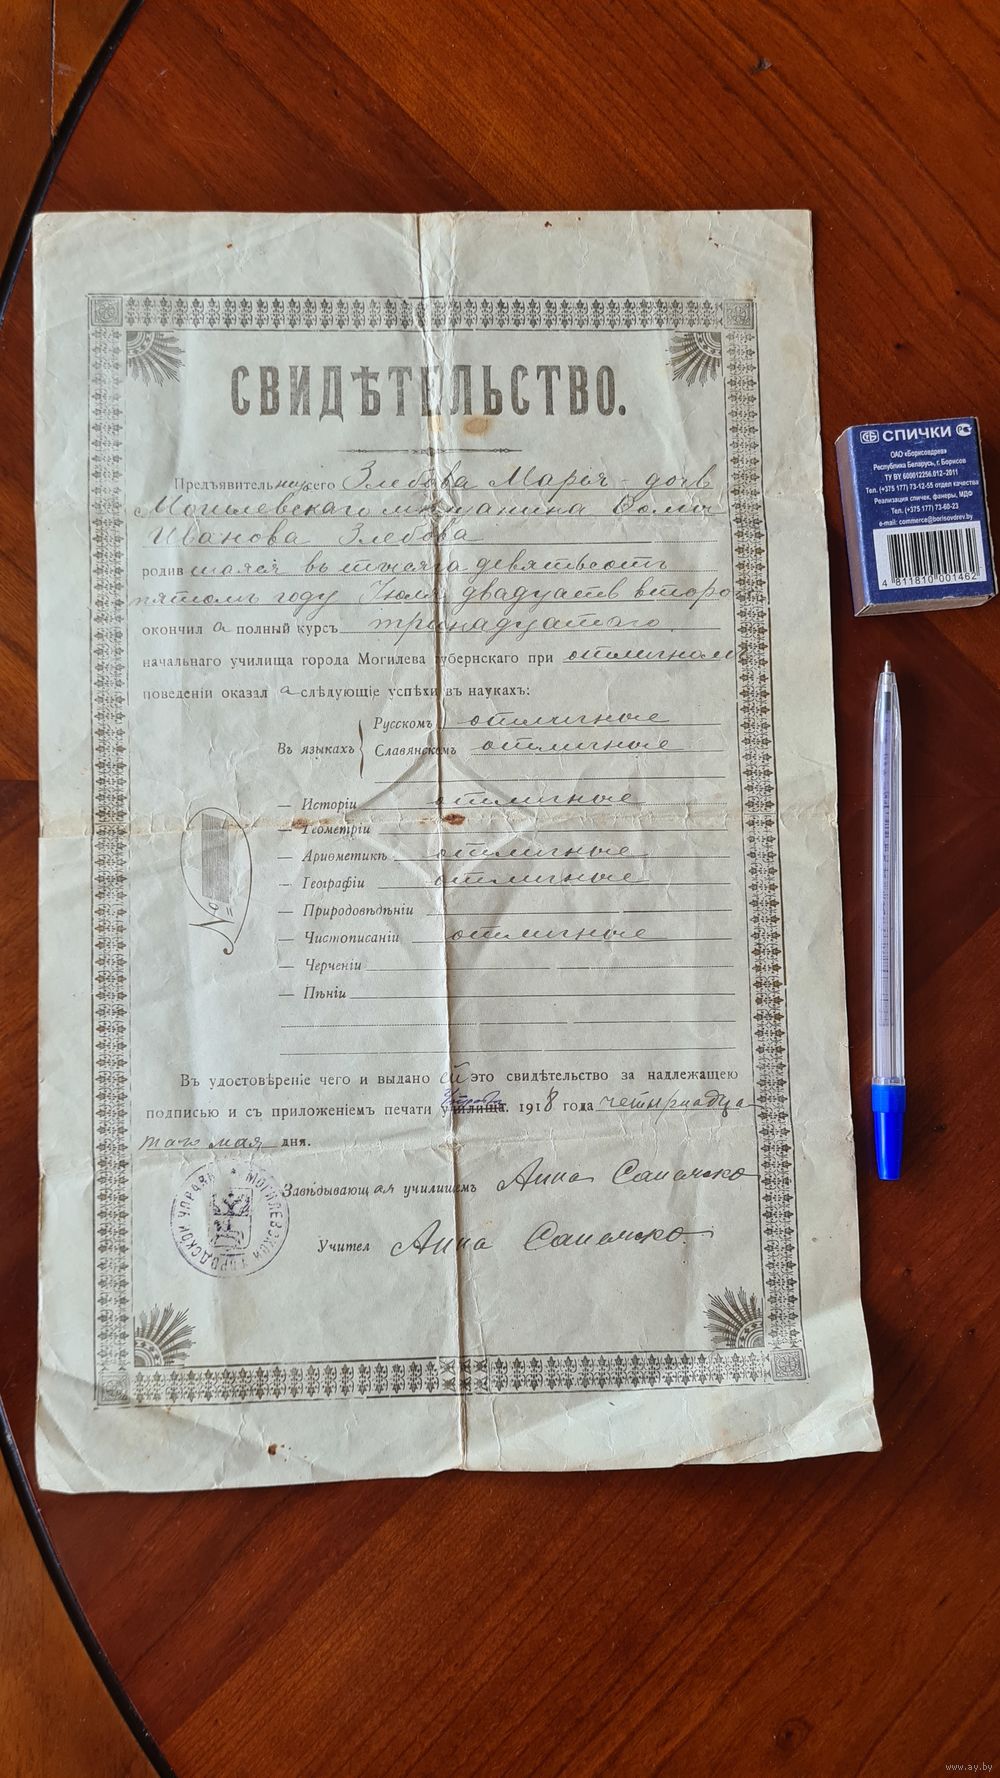 СВИДѢТЕЛЬСТВО.
Предъявительницсего Злебова Марія дочь
Могилевскаго мѣщанина
Иванова Злебова
родившаяся въ тысяча девятьсотъ
пятомъ году Іюля двадцать второ
окончила полный курсъ тринадцатаго
начальнаго училища города Могилева губернскаго при отличномъ
поведеніи оказала слѣдующіе успѣхи въ наукахъ:
Въ языкахъ
Русскомъ отличные
Славянскомъ отличные
— Исторіи отличные
— Геометріи
— Ариѳметикѣ отличные
— Географіи отличные
— Природовѣдѣніи
— Чистописаніи отличные
— Черченіи
— Пѣніи
№
Въ удостовѣреніе чего и выдано ей это свидѣтельство за надлежащею
подписью и съ приложеніемъ печати училища. 1918 года четырнадца
таго мая дня.
Завѣдывающая училищемъ Анна
Учител Анна
МОГИЛЕВСКОЙ ГОРОДСКОЙ УПРАВЫ
СПИЧКИ
ОАО «Борисовдрев»
Республика Беларусь, г. Борисов
ТУ BY 600012256.012-2011
Тел. (+375 177) 73-12-55 отдел качества
Реализация спичек, фанеры, МДФ
Тел. (+375 177) 73-60-23
e-mail: commerce@borisovdrev.by
4 811810 001462
www.ay.by